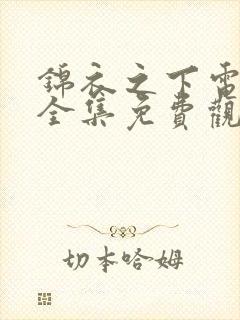 錦衣之下電
全集免費觀
切本哈姆